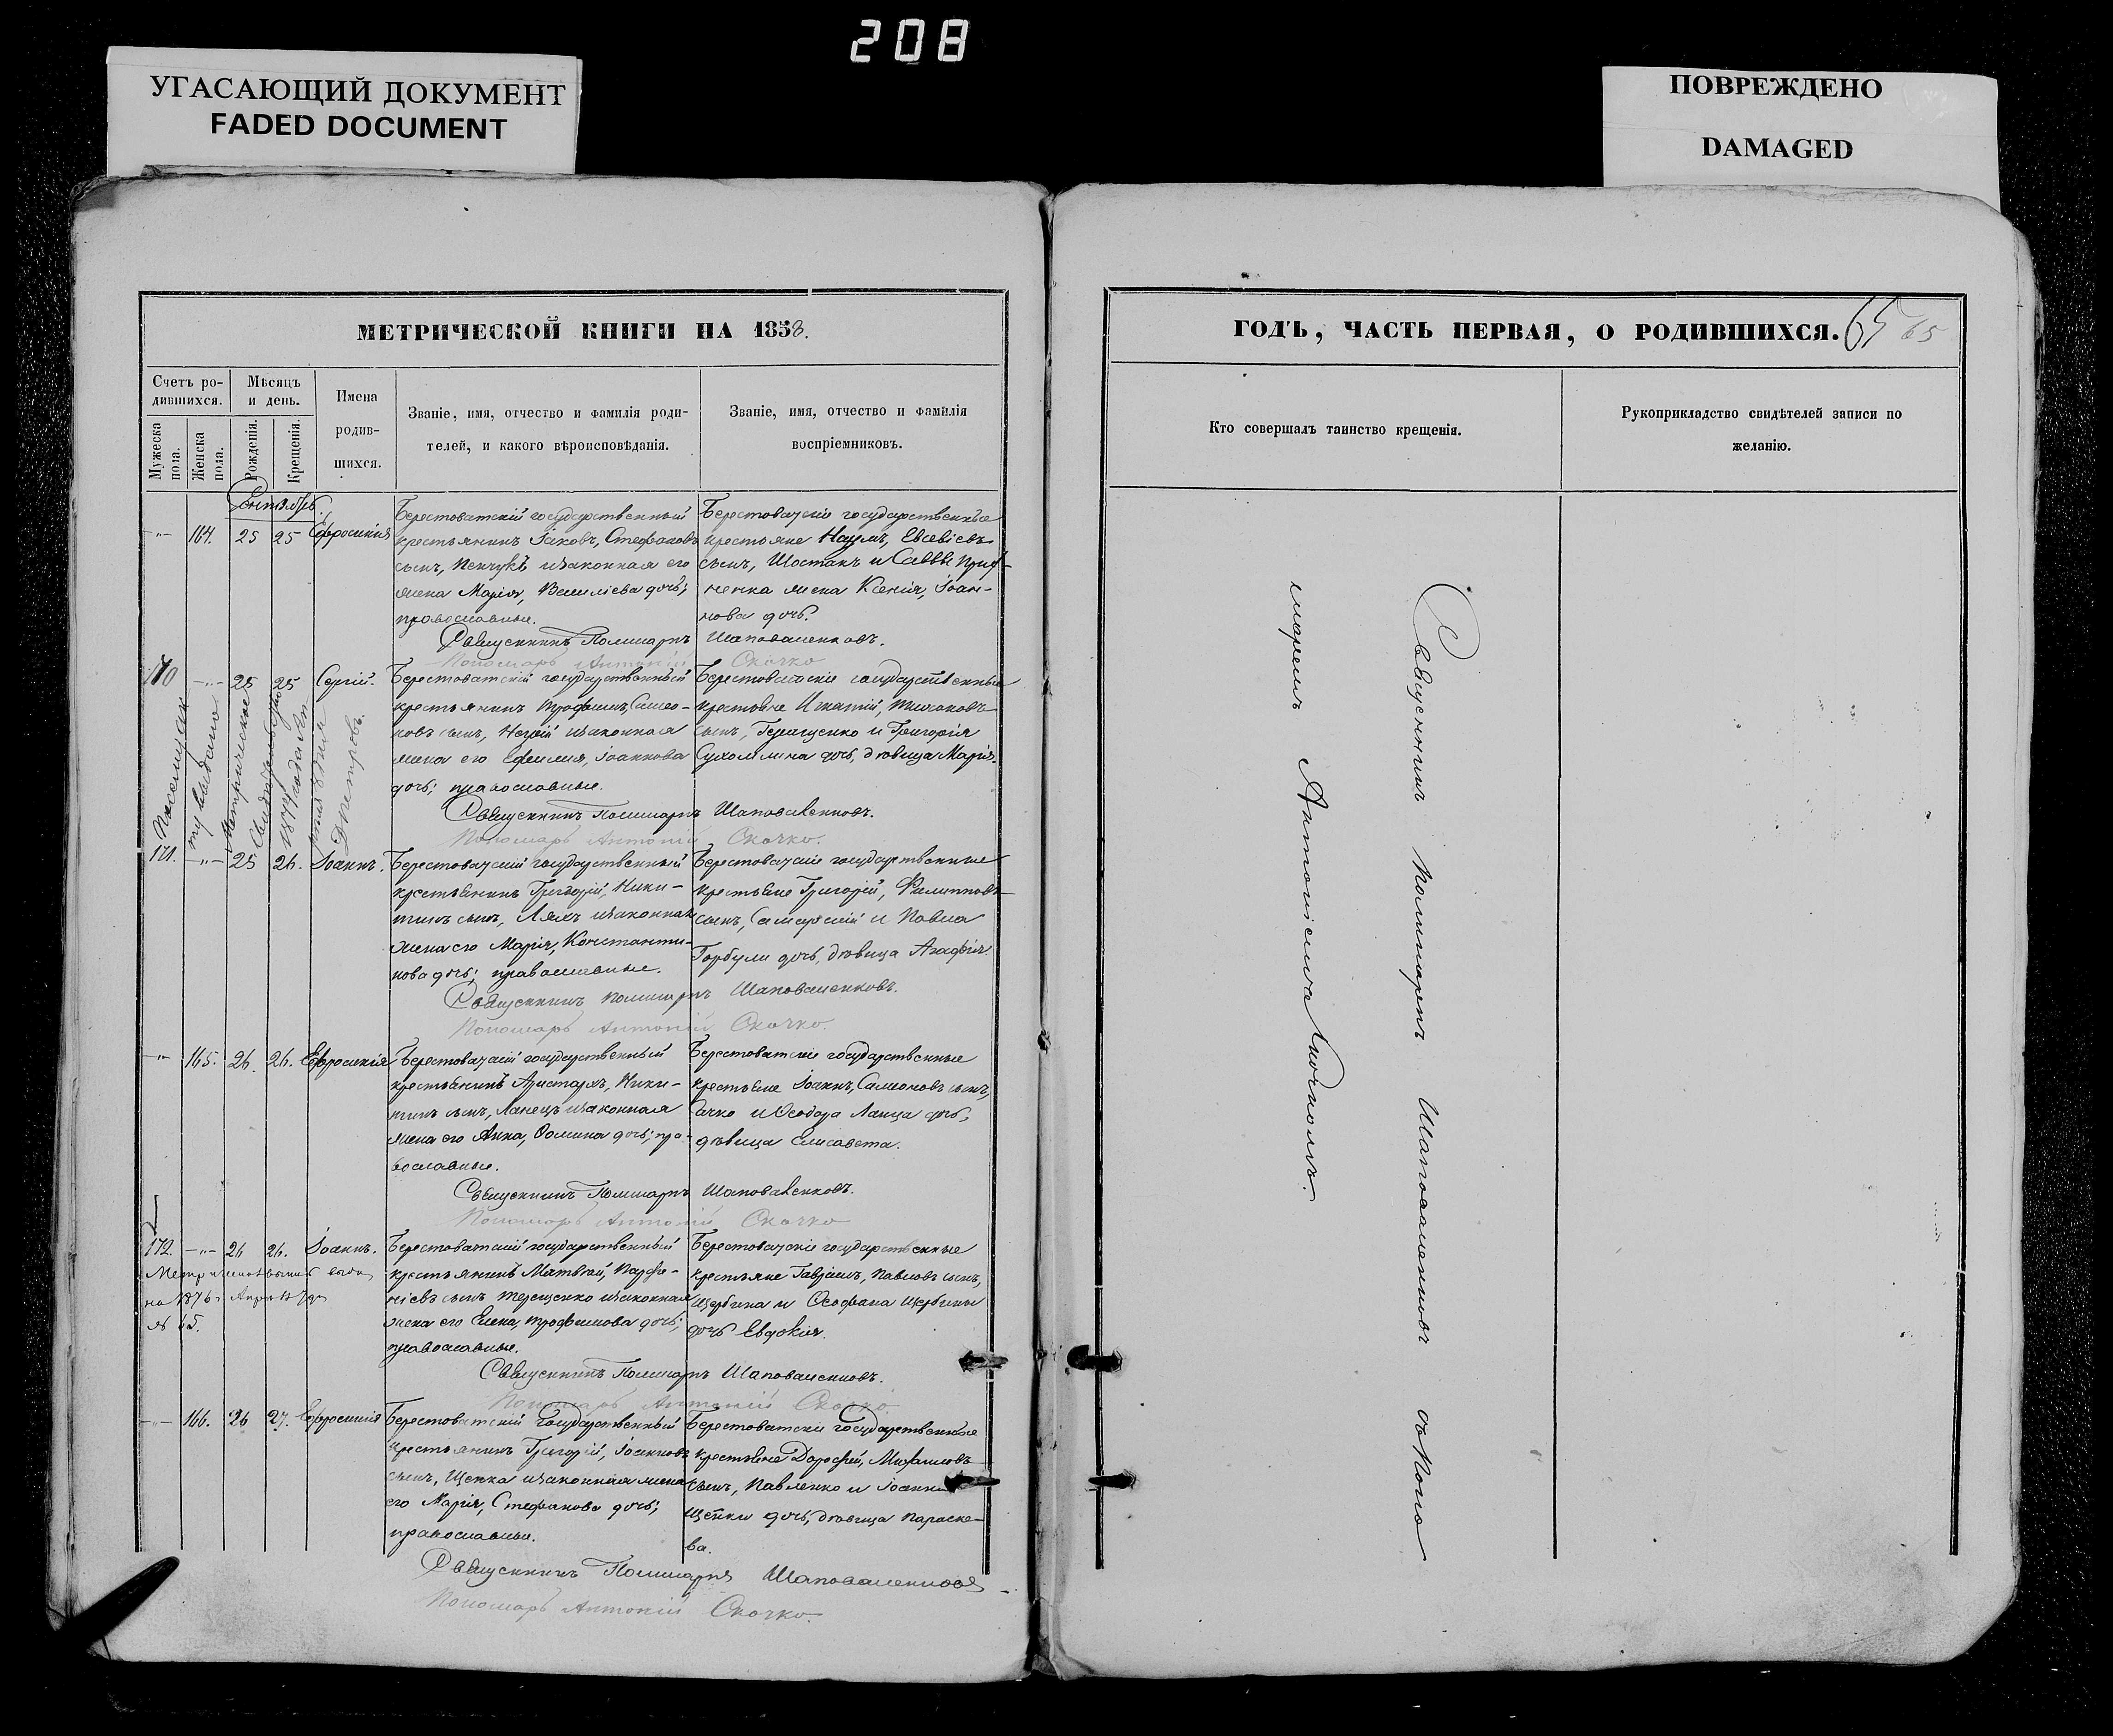 208
УГАСАЮЩИЙ ДОКУМЕНТ
FADED DOCUMENT
ПОВРЕЖДЕНО
DAMAGED
МЕТРИЧЕСКОЙ КНИГИ НА 1858.
Счетъ ро-
дившихся.
Мѣсяцъ
и день.
Имена
родив-
шихся.
Званіе, имя, отчество и фамилія роди-
телей, и какого вѣроисповѣданія.
Званіе, имя, отчество и фамилія
воспріемниковъ.
Мужеска
пола.
Женска
пола.
Рожденія.
Крещенія.
Сентябрь.
164. 25 25 Ефросинія
Берестоватскій государственный
крестьянинъ Іаковъ, Стефановъ
сынъ, и законная его
жена Марія, Василіева дочь;
православные.
Берестоватскіе государственные
крестьяне Наумъ, Евсевіевъ
сынъ, Шостакъ и Саввы
жена Ксенія, Іоан-
нова дочь.
Священникъ Поликарпъ Шаповаленковъ.
Пономарь Антоній Скочко
170 25 25 Сергій.
Берестоватскій государственный
крестьянинъ Трофимъ, Симео-
новъ сынъ, и законная
жена его Ефимія, Іоаннова
дочь; православные.
Берестоватскіе государственные
крестьяне Игнатій,
сынъ, Геращенко и Григорія
Сухомлина дочь, дѣвица Марія.
Священникъ Поликарпъ Шаповаленковъ.
Пономарь Антоній Скочко.
выдано
Метрическое
1874 года
171. 25 26. Іоаннъ.
Берестоватскій государственный
крестьянинъ Григорій, Ники-
тинъ сынъ, Ляхъ и законная
жена его Марія, Константи-
нова дочь; православные.
Берестоватскіе государственные
крестьяне Григорій, Филипповъ
сынъ, Самарскій и Павла
Горбули дочь, дѣвица Агафія.
Священникъ Поликарпъ Шаповаленковъ.
Пономарь Антоній Скочко.
165. 26. 26. Ефросинія
Берестоватскій государственный
крестьянинъ Аристархъ, Ники-
тинъ сынъ, Ланецъ и законная
жена его Анна, Ѳомина дочь; пра-
вославные.
Берестоватскіе государственные
крестьяне Іоаннъ, Симеоновъ сынъ,
и Ѳеодора Ланца дочь,
дѣвица Елисавета.
Священникъ Поликарпъ Шаповаленковъ.
Пономарь Антоній Скочко
172. 26 26. Іоаннъ.
Берестоватскій государственный
крестьянинъ Матвѣй, Парфе-
ніевъ сынъ Терещенко и законная
жена его Елена, Трофимова дочь;
православные.
Берестоватскіе государственные
крестьяне Гавріилъ, Павловъ сынъ,
Щербина и Ѳеофана Щербины
дочь Евдокія.
Священникъ Поликарпъ Шаповаленковъ.
Пономарь Антоній Скочко.
166. 26 27. Ефросинія
Берестоватскій государственный
крестьянинъ Григорій, Іоанновъ
сынъ, Щепка и законная жена
его Марія, Стефанова дочь;
православные.
Берестоватскіе государственные
крестьяне Дорофей, Михаиловъ
сынъ, Павленко и Іоанна
Щепки дочь, дѣвица Параске-
ва.
Священникъ Поликарпъ Шаповаленковъ
Пономарь Антоній Скочко.
ГОДЪ, ЧАСТЬ ПЕРВАЯ, О РОДИВШИХСЯ.
65 65
Кто совершалъ таинство крещенія.
Рукоприкладство свидѣтелей записи по
желанію.
Священникъ Поликарпъ Шаповаленковъ съ Поно
маремъ Антоніемъ Скочкомъ.